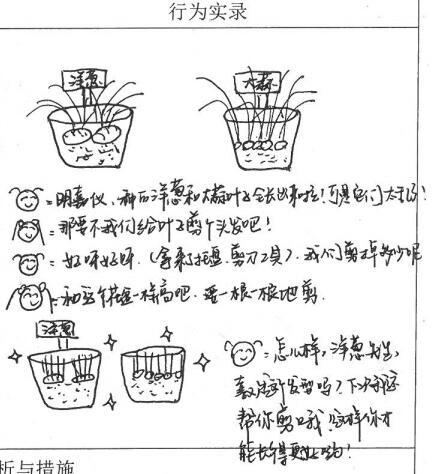 行为实录
洋葱
大蒜
：明嘉仪，种的洋葱和大蒜叶子全长出来啦！可是它们太乱了！
：那要不我们给叶子剪个头发吧！
：好呀好呀（拿来托盘、剪刀工具）。我们剪掉多少呢
：和这个花盆一样高吧，要一根一根地剪。
洋葱
：怎么样，洋葱先生，
喜欢这个发型吗？下次我还
帮你剪哦，这样你才
能长得更好哟！
析与措施